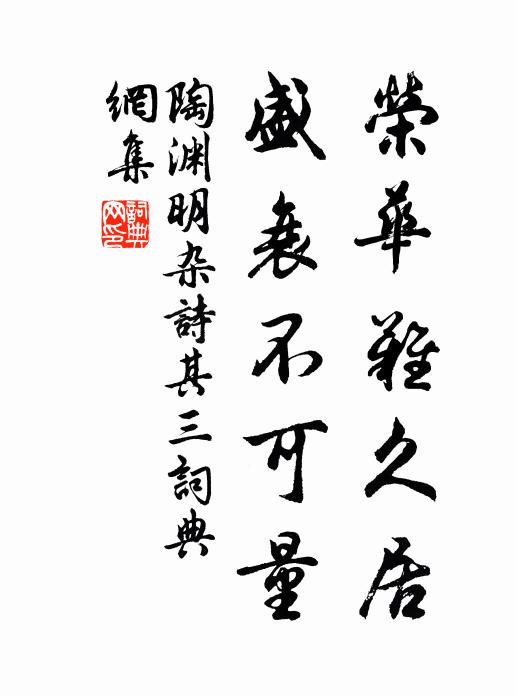 榮華難久居
盛衰不可量
陶渊明杂詩其三詞典
網集
詞典
网印